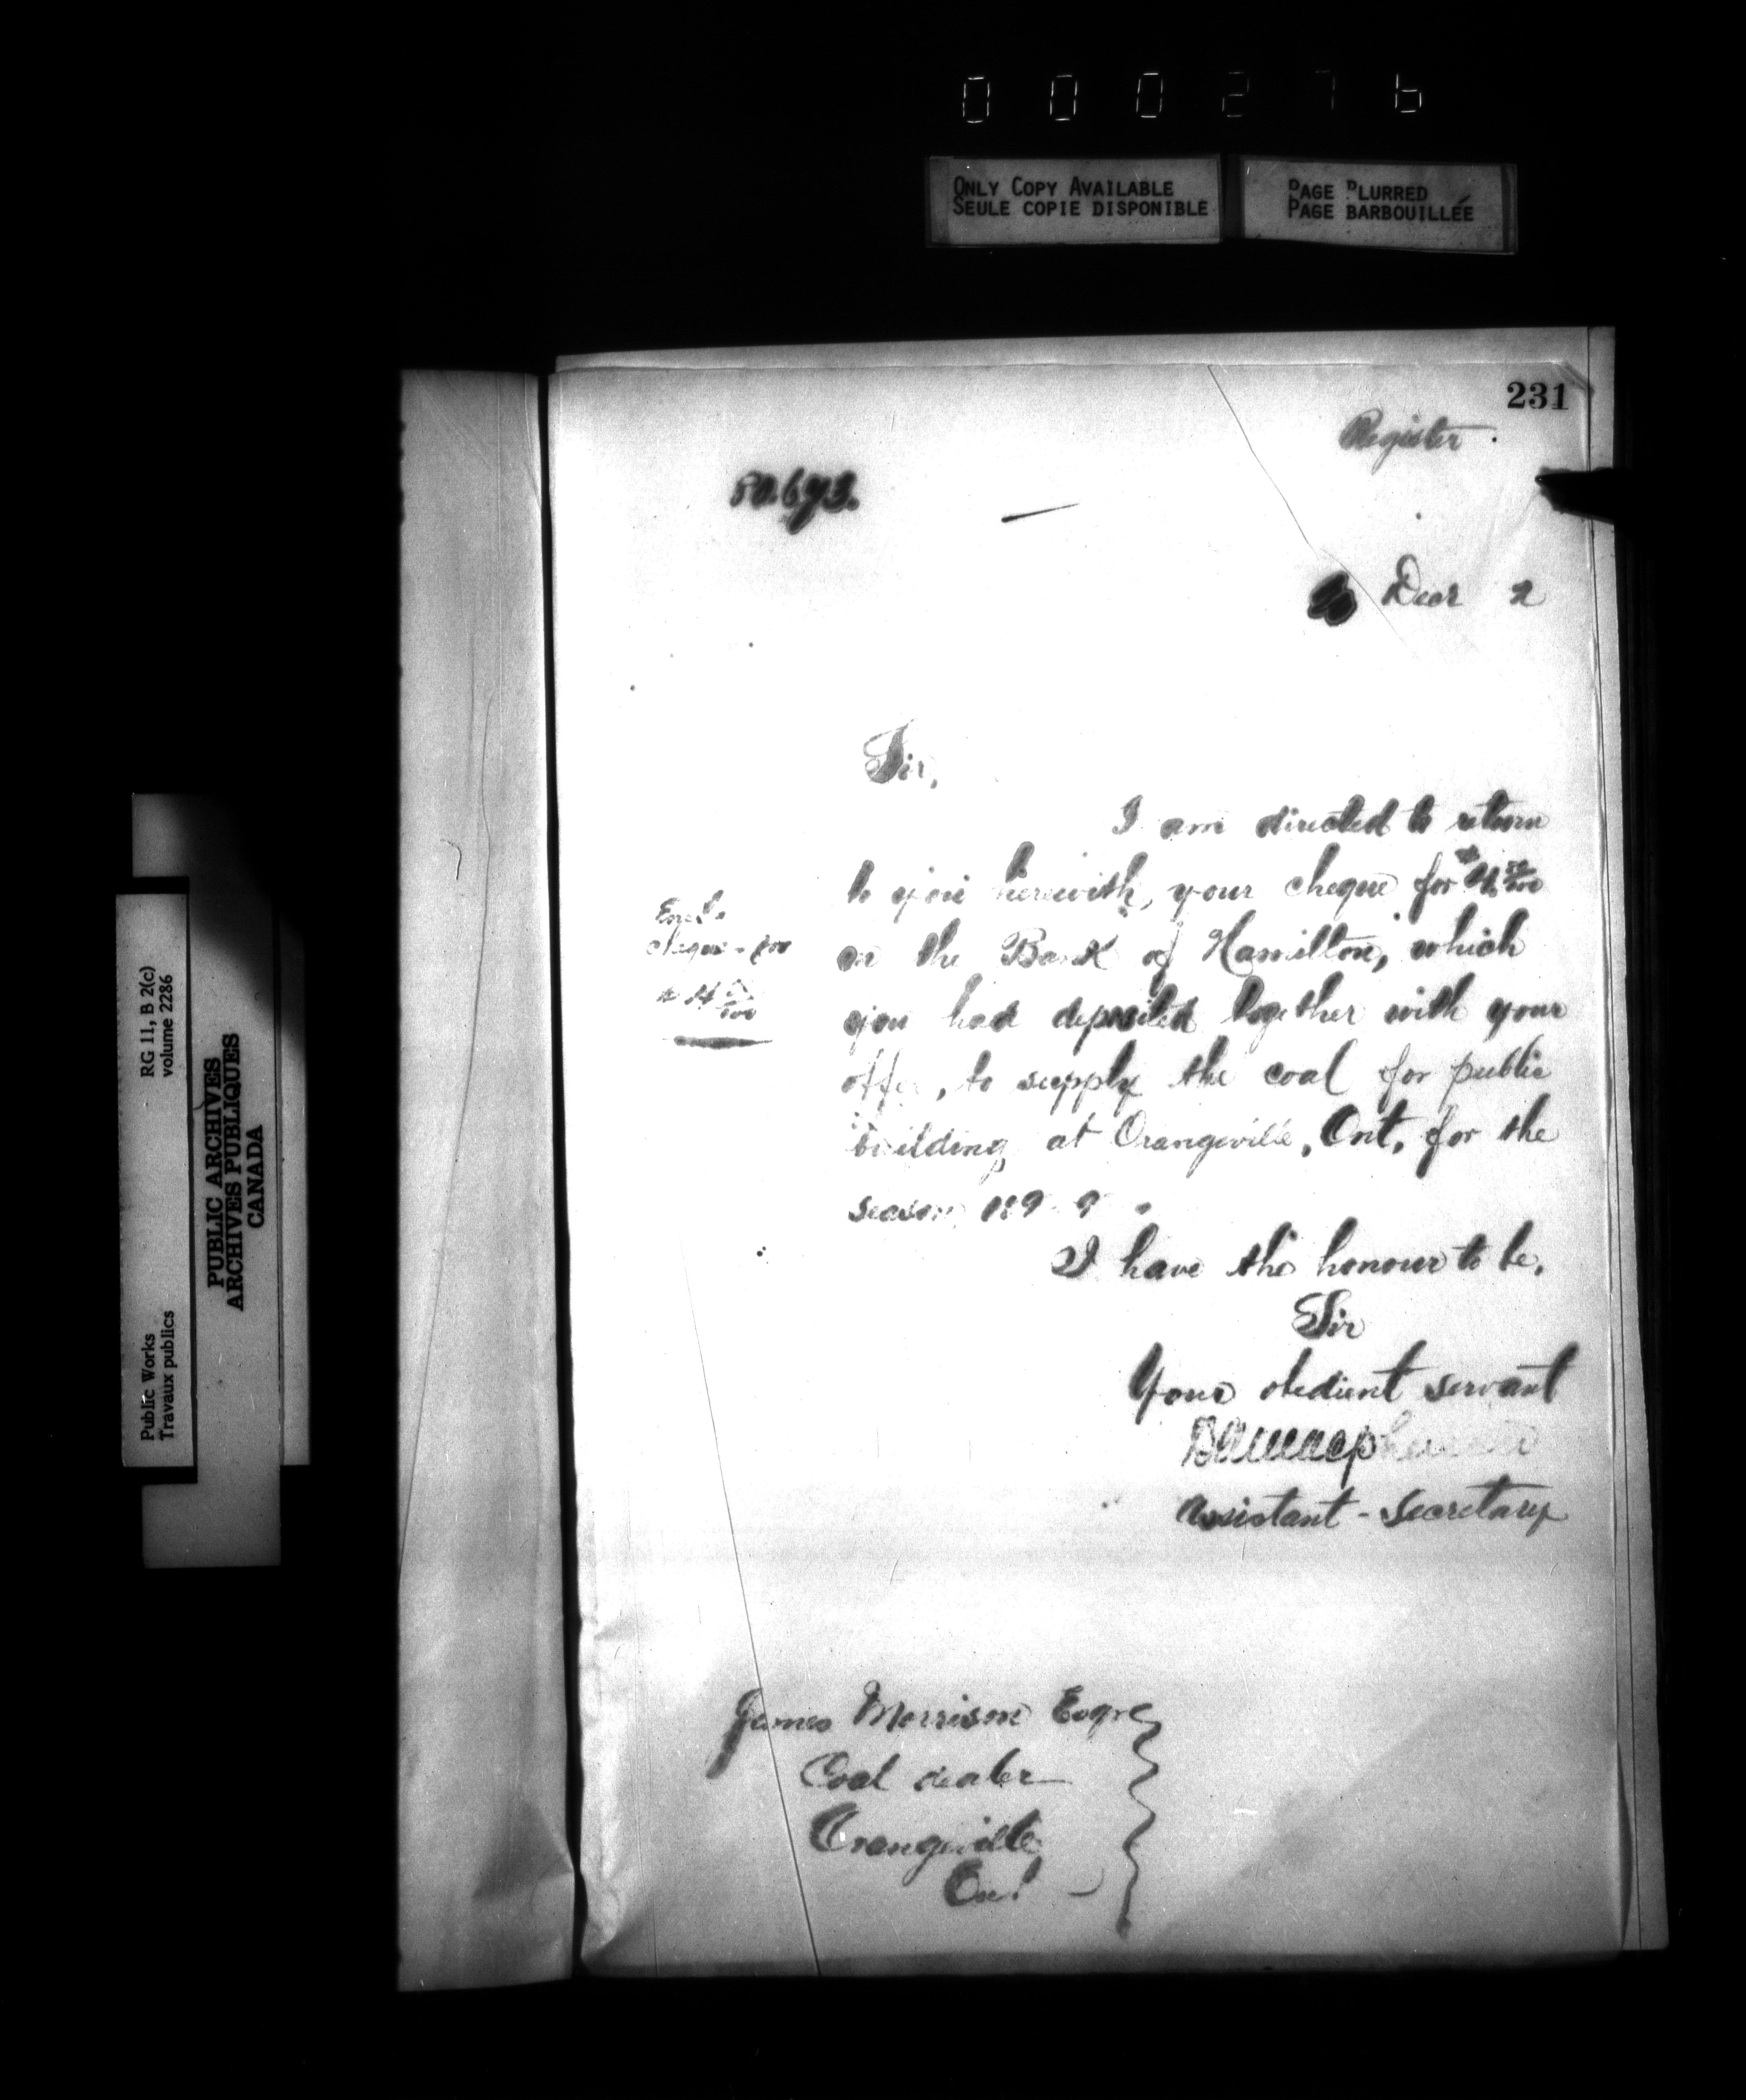 0 0 0 2 7 6
ONLY COPY AVAILABLE
SEULE COPIE DISPONIBLE
PAGE BLURRED
PAGE BARBOUILLÉE
231
Register
Sir,
I am directed to return
to you herewith, your cheque for
on the Bank of Hamilton, which
you had deposited together with your
offer, to supply the coal for public
building at Orangeville, Ont, for the
season
I have the honour to be,
Sir
Your obedient servant
Assistant-Secretary
Encl.
cheque for
James Morrison Esqre
Coal dealer
Orangeville
Ont
Public Works
Travaux publics
RG 11, B 2(c)
volume 2286
PUBLIC ARCHIVES
ARCHIVES PUBLIQUES
CANADA